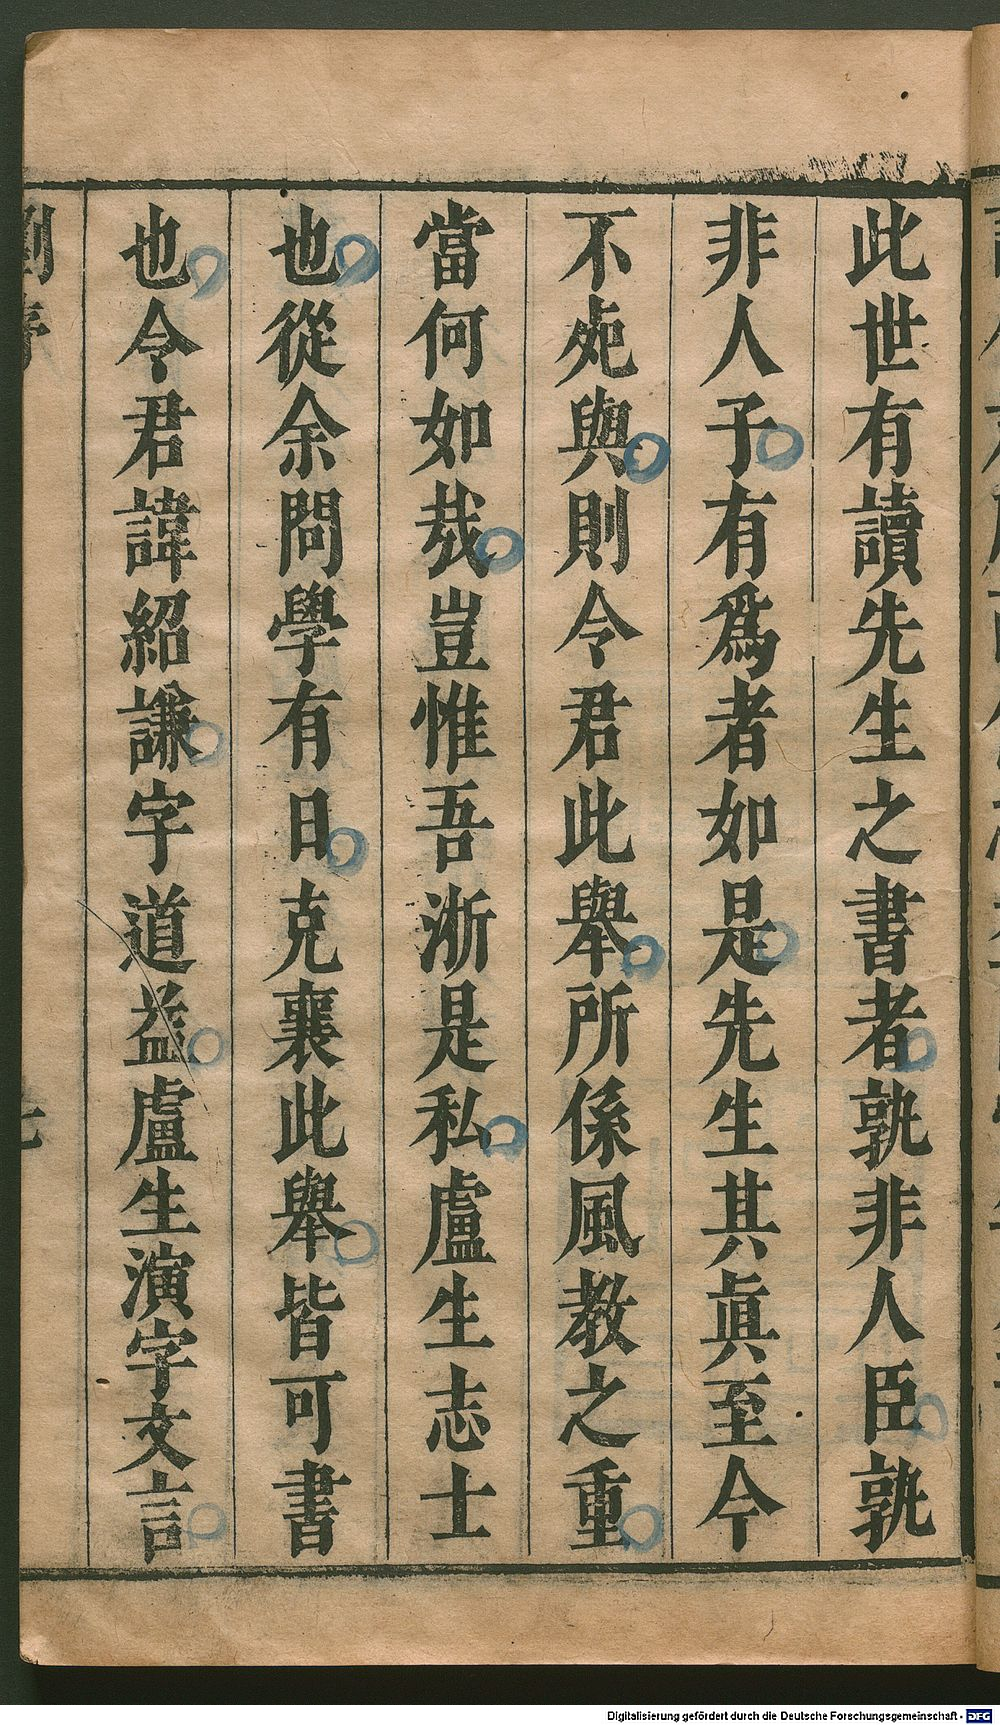 此世有讀先生之書者孰非人臣孰
非人子有爲者如是先生其眞至今
不𣦸與則令君此舉所係風教之重
當何如哉豈惟吾淅是私盧生志士
也從余問學有日克襄此舉皆可書
也令君諱紹謙字道益盧生演字文言
劉序
七
Digitalisierung gefördert durch die Deutsche Forschungsgemeinschaft - DFG